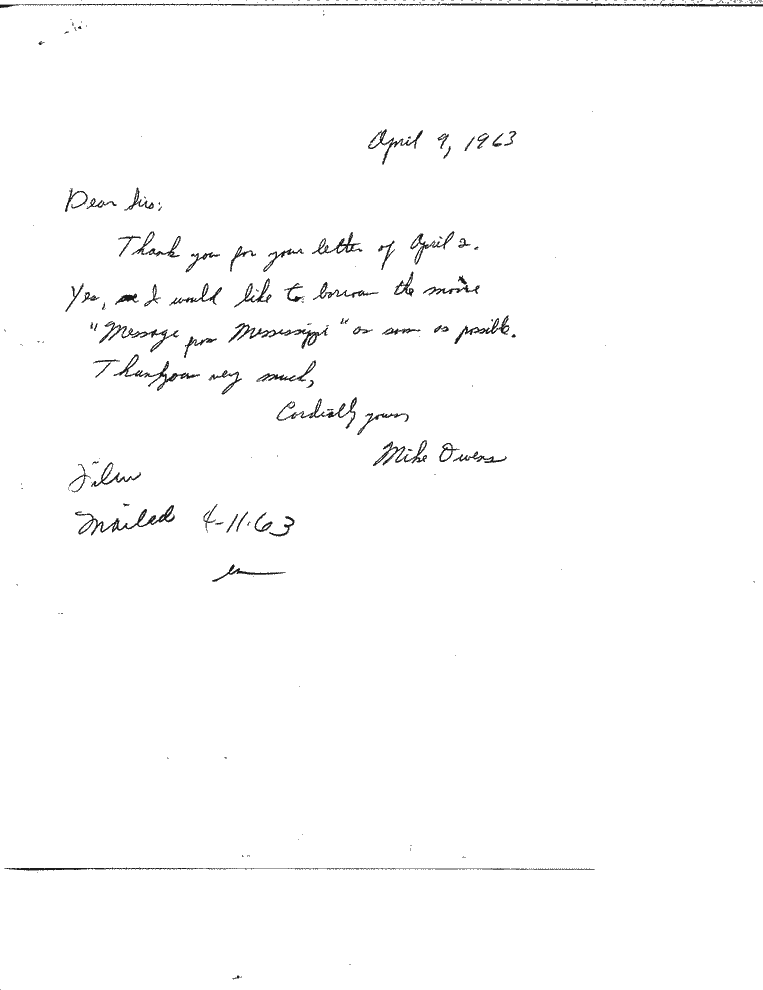 April 9, 1963
Dear Sirs;
Thank you for your letter of April 2.
Yes, I would like to borrow the movie
"Message from Mississippi" as soon as possible.
Thankyou very much,
Cordially yours,
Mike Owens
Film
Mailed 4-11-63